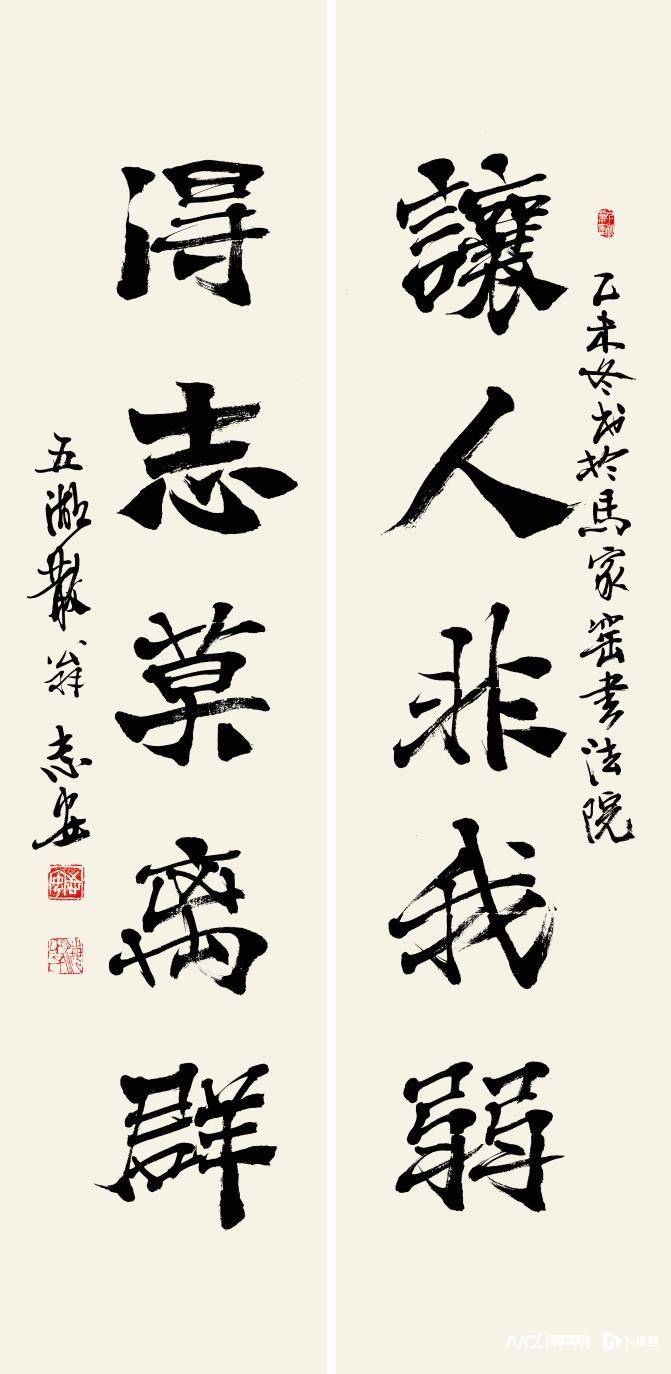 讓人非我弱
乙未冬書於馬家窑書法院
得志莫离群
五湖散翁志安
N视频